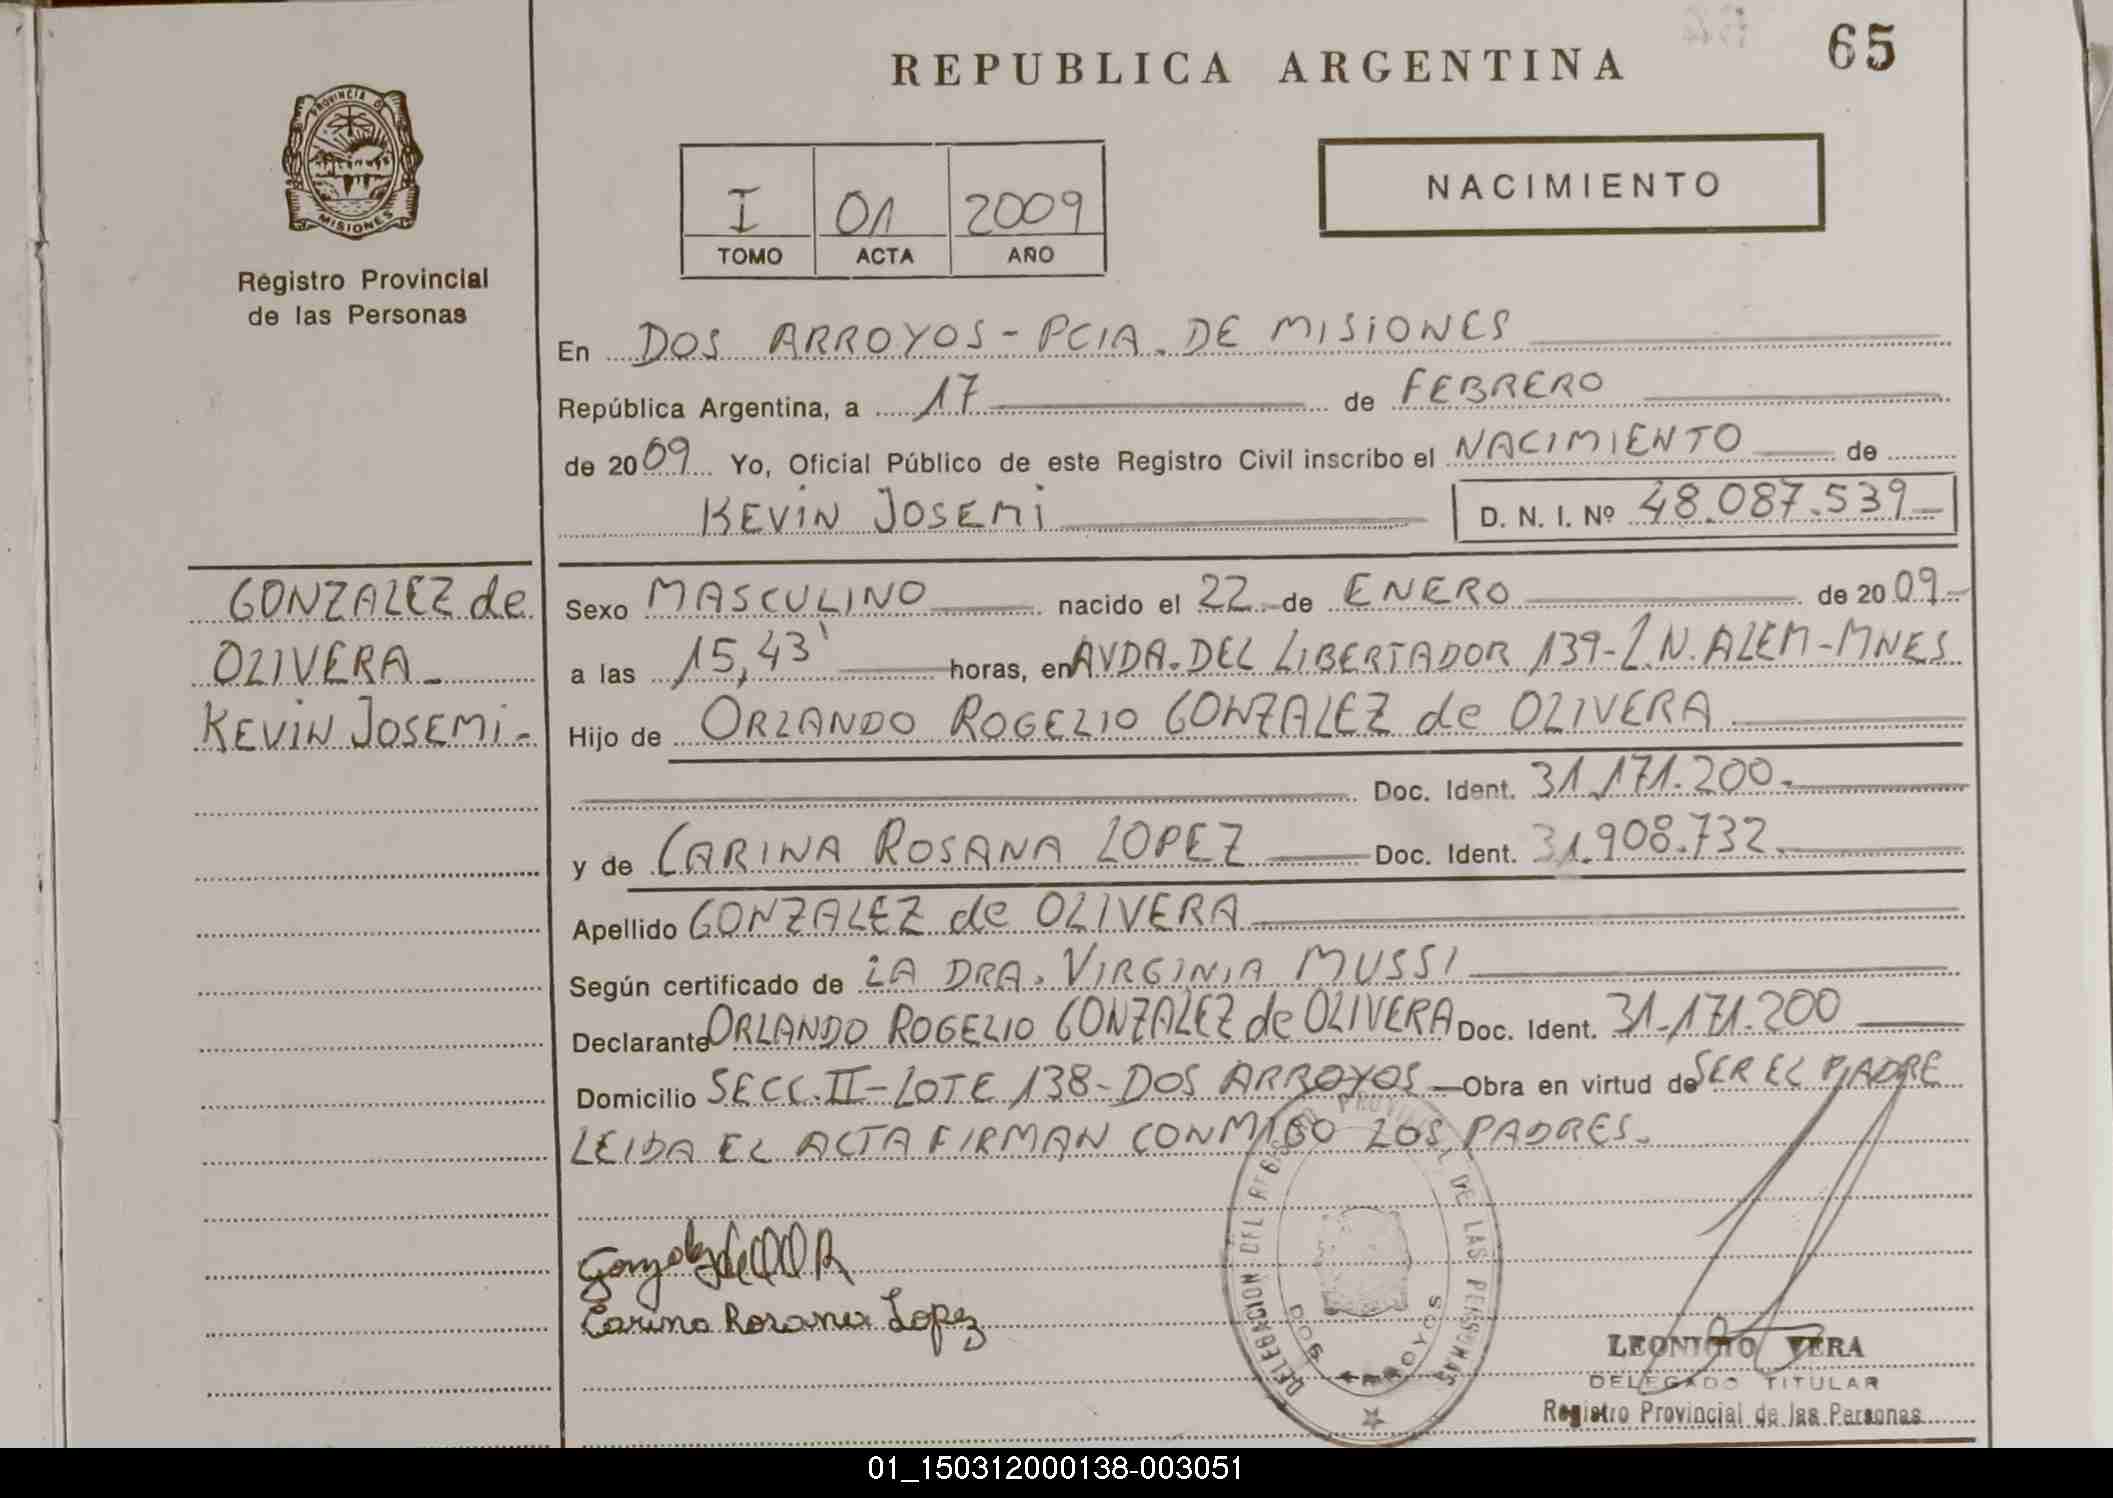 REPUBLICA ARGENTINA
65
PROVINCIA DE
MISIONES
Registro Provincial
de las Personas
I 01 2009
TOMO ACTA AÑO
NACIMIENTO
En DOS ARROYOS - PCIA. DE MISIONES
República Argentina, a 17 de FEBRERO
de 2009 Yo, Oficial Público de este Registro Civil inscribo el NACIMIENTO de
KEVIN JOSEMI D. N. I. Nº 48.087.539
GONZALEZ de
OLIVERA
KEVIN JOSEMI
Sexo MASCULINO nacido el 22 de ENERO de 2009
a las 15,43' horas, en AVDA. DEL LIBERTADOR 139-L.N. ALEM-MNES
Hijo de ORLANDO ROGELIO GONZALEZ de OLIVERA
Doc. Ident. 31.171.200.
y de CARINA ROSANA LOPEZ Doc. Ident. 31.908.732.
Apellido GONZALEZ de OLIVERA
Según certificado de LA DRA. VIRGINIA MUSSI
Declarante ORLANDO ROGELIO GONZALEZ de OLIVERA Doc. Ident. 31.171.200
Domicilio SECC. II - LOTE 138 - DOS ARROYOS Obra en virtud de SER EL PADRE
LEIDA EL ACTA FIRMAN CONMIGO LOS PADRES.
Carina Rosana Lopez
DELEGACION DEL REGISTRO PROVINCIAL DE LAS PERSONAS
DOS ARROYOS
LEONICIO VERA
DELEGADO TITULAR
Registro Provincial de las Personas
01_150312000138-003051